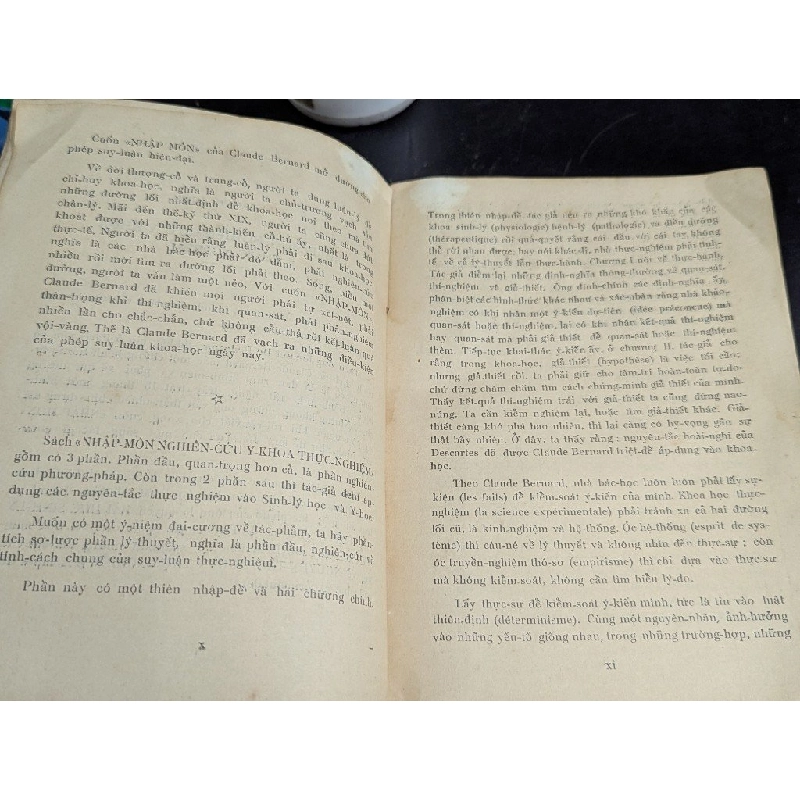 Cuốn «NHẬP MÔN» của Claude Bernard mở đường cho
phép suy-luận hiện-đại.
Về đời thượng-cổ và trung-cổ, người ta dùng luận-lý để
chỉ-huy khoa-học, nghĩa là người ta chủ-trương vạch
những đường lối nhất-định để khoa-học noi theo mà tìm
chân-lý. Mãi đến thế-kỷ thứ XIX, người ta cũng chưa dứt
khoát được với những thành-kiến cổ-hủ ấy, nhất là trong
thực-tế. Người ta đã hiểu rằng luận-lý phải đi sau khoa-học,
nghĩa là các nhà bác-học phải dò dẫm, phải nghiên-cứu
nhiều rồi mới tìm ra đường lối phải theo. Song, hiểu một
đường, người ta vẫn làm một nẻo. Với cuốn «NHẬP-MÔN»
Claude Bernard đã khiến mọi người phải tự xét-nét, phải
thận-trọng khi thí-nghiệm, khi quan-sát, phải thí-nghiệm
nhiều lần cho chắc-chắn, chứ không cẩu-thả rồi kết-luận quá
vội-vàng. Thế là Claude Bernard đã vạch ra những điều-kiện
của phép suy luận khoa-học ngày nay.
☆
Sách «NHẬP-MÔN NGHIÊN-CỨU Y-KHOA THỰC-NGHIỆM,
gồm có 3 phần. Phần đầu, quan-trọng hơn cả, là phần nghiên-
cứu phương-pháp. Còn trong 2 phần sau thì tác-giả đem áp
dụng các nguyên-tắc thực nghiệm vào Sinh-lý học và Y-học
Muốn có một ý-niệm đại-cương về tác-phẩm, ta hãy phân-
tích sơ-lược phần lý-thuyết, nghĩa là phần đầu, nghiên-cứu về
tính-cách chung của suy-luận thực-nghiệm.
Phần này có một thiên nhập-đề và hai chương chính.
x
Trong thiên nhập-đề tác-giả nêu ra những khó khăn của các
khoa sinh-lý (physiologie) bệnh-lý (pathologie) và điều dưỡng
(thérapeutique) rồi quả-quyết rằng cái đầu với cái tay không
thể rời nhau được, hay nói khác đi, nhà thực-nghiệm phải thuộc
về cả lý-thuyết lẫn thực-hành. Chương I nói về thực-hành,
Tác giả điểm lại những định-nghĩa thông-thường về quan-sát,
thí-nghiệm và giả-thiết. Ông đính-chính các định-nghĩa ấy,
phân-biệt các hình-thức khác nhau và xác-nhận rằng nhà khảo-
nghiệm có khi nhân một ý-kiến dự-tiên (idée préconçue) mà
quan-sát hoặc thí-nghiệm, lại có khi nhân kết-quả thí-nghiệm
hay quan-sát mà phải giả-thiết để quan-sát hoặc thí-nghiệm
thêm. Tiếp-tục khai-thác ý-kiến ấy, ở chương II, tác giả cho
rằng trong khoa-học, giả-thiết (hypothèse) là việc tối cần;
nhưng giả-thiết rồi, ta phải giữ cho tâm-trí hoàn-toàn tự-do
chứ đừng chăm chăm tìm cách chứng-minh giả thiết của mình.
Thấy kết-quả thí-nghiệm trái với giả-thiết ta cũng đừng nao-
núng. Ta cần kiểm nghiệm lại, hoặc tìm giả-thiết khác. Giả-
thiết càng khó phá bao nhiêu, thì lại càng có hy-vọng gần sự
thật bấy nhiêu. Ở đây, ta thấy rằng : nguyên-tắc hoài-nghi của
Descartes đã được Claude Bernard triệt-để áp-dụng vào khoa
học.
Theo Claude Bernard, nhà bác-học luôn luôn phải lấy sự-
kiện (les faits) để kiểm-soát ý-kiến của mình. Khoa học thực-
nghiệm (la science expérimentale) phải tránh xa cả hai đường
lối cũ, là sinh-nghiệm và hệ thống. Óc hệ-thống (esprit de sys-
tème) thì câu-nệ về lý thuyết và không nhìn đến thực-sự ; còn
óc truyền-nghiệm thô-sơ (empirisme) thì chỉ dựa vào thực-sự
mà không kiểm-soát, không cần tìm hiểu lý-do.
Lấy thực-sự để kiểm-soát ý-kiến mình, tức là tin vào luật
thiên-định (déterminisme). Cùng một nguyên-nhân, ảnh-hưởng
vào những yếu-tố giống nhau, trong những trường-hợp, những
xi